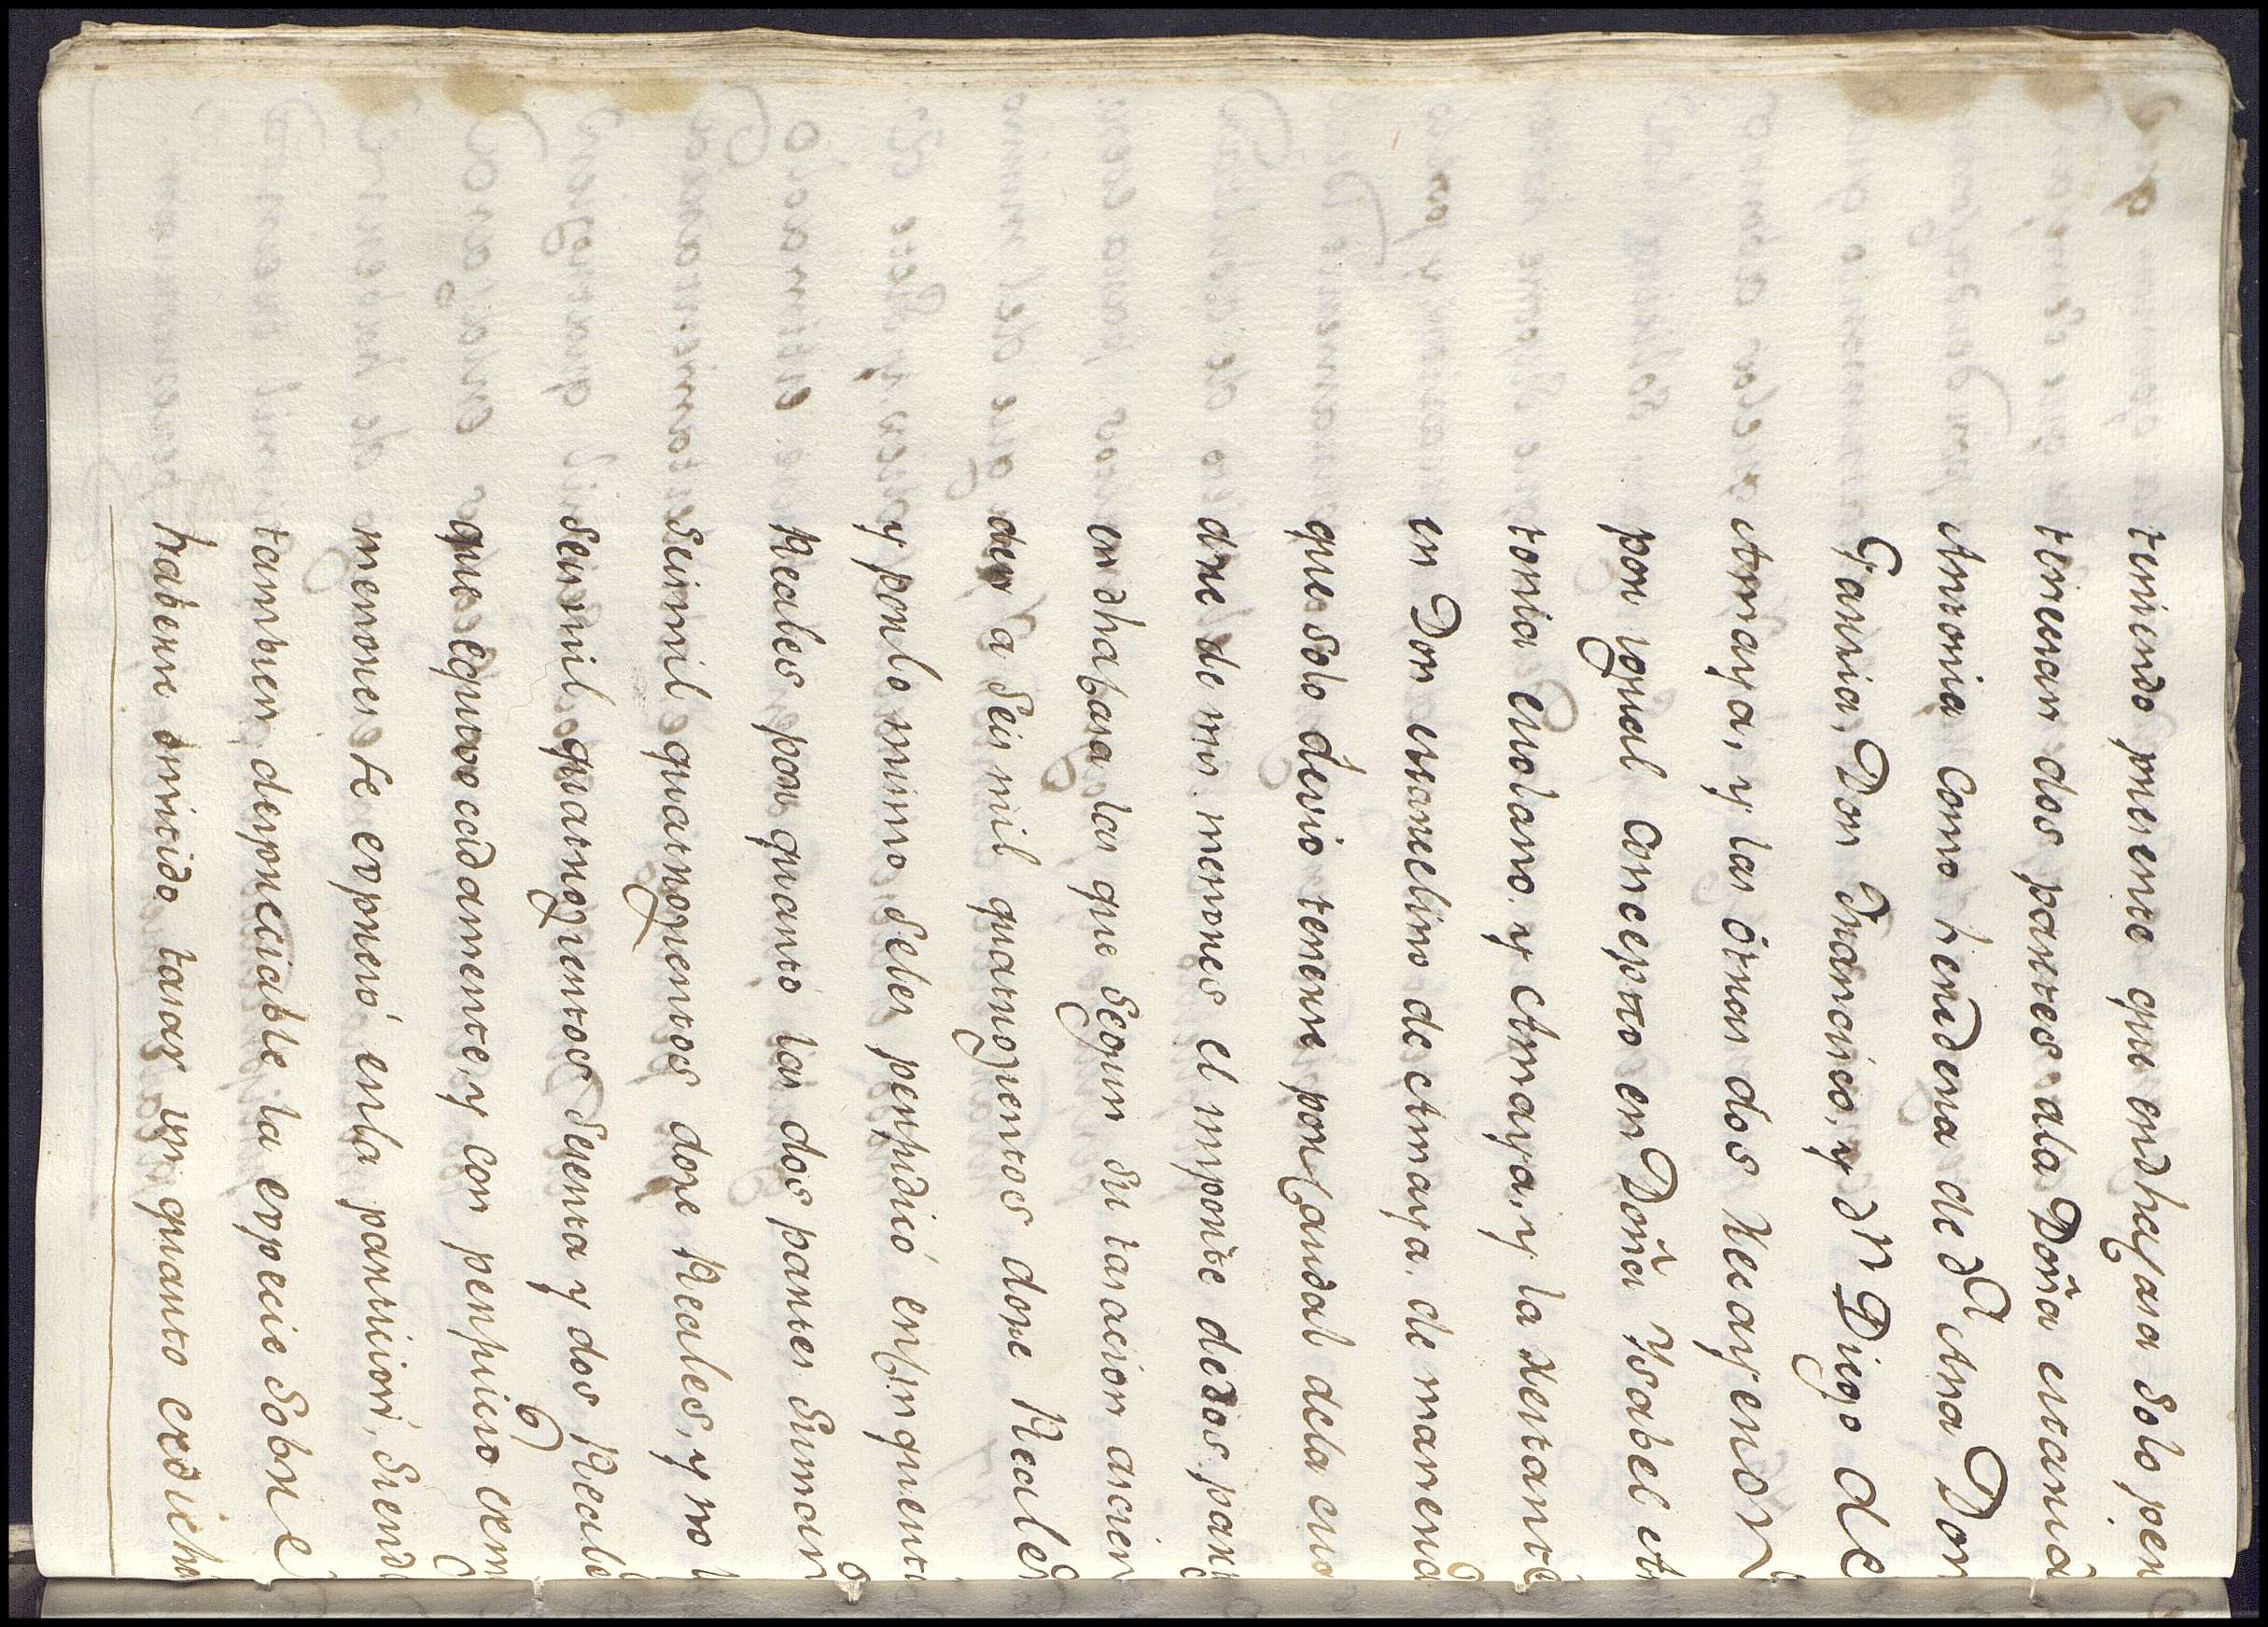 teniendo presente que en dha Casa solo per
tenecian dos partes ala Doña Maria
Antonia como heredera de Dª Ana Don
Garcia, Don Francisco, y Dn Diego de
Amaya, y las otras dos Recayendo
por ygual concepto en Doña Ysabel A
tonia Molano y Amaya, y la restante
en Don Marcelino de Amaya, de manera
que solo devio tenerse por Caudal dela
dre de mis menores el importe de dos part
en dha Casa las que segun su tasacion ascien
den a seis mil quatrozientos doze Reales
y por lo mismo se les perjudicó en
Reales por quanto las dos partes suman
seis mil quatrozientos doze Reales, y no
seis mil quatrozientos sesenta y dos Reale
que equivocadamente, y con perjuicio de m
menores se expresó en la particion, siend
tambien despreciable la expecie sobre
haberse omitido tasar en quanto